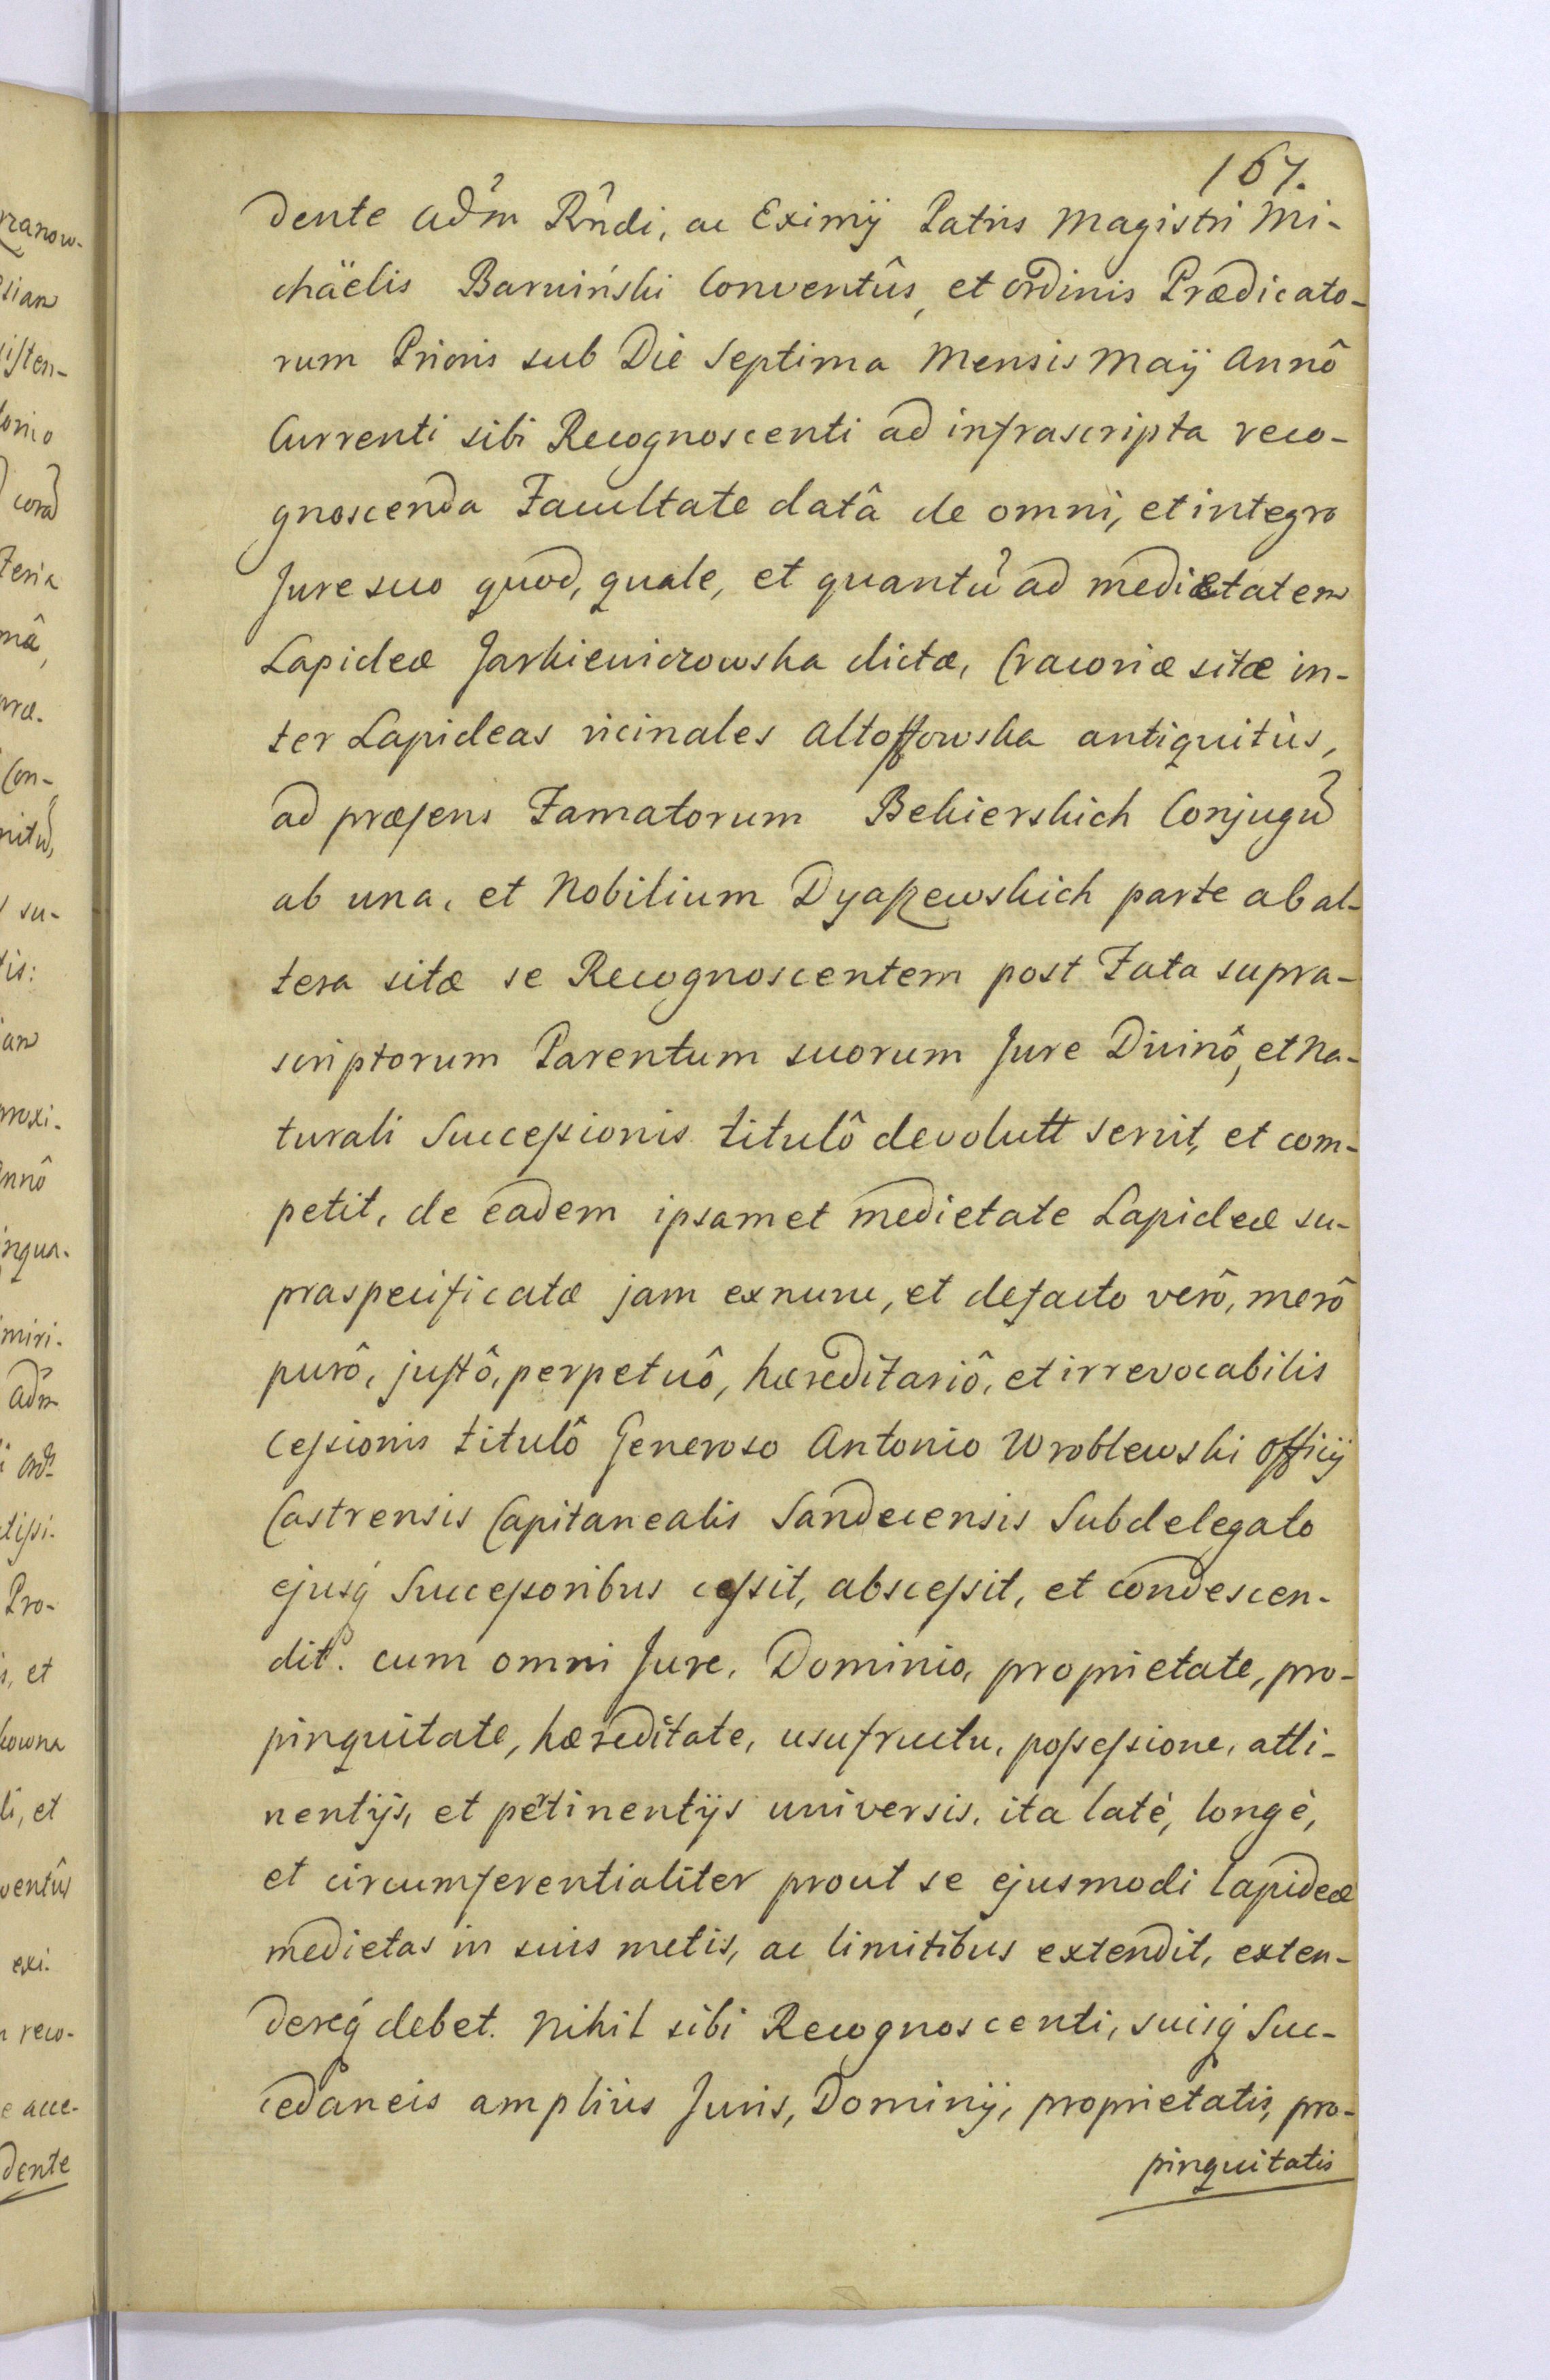 167.
dente adm̃ Rñdi, ac Eximÿ Patris Magistri Mi-
chäelis Barwiński Conventûs, et ordinis Prædicato-
rum Prioris sub Die Septima Mensis Maÿ Annô
Currenti sibi Recognoscenti ad infrascripta reco-
gnoscenda Facultate datâ de omni, et integro
Jure suo quod, quale, et quantũ ad medietatem
Lapideæ Jarkiewiczowska dictæ, Cracoviæ sitæ in-
ter Lapideas vicinales Altoffowska antiquitùs,
ad præsens Famatorum Bekierskich Conjugũ
ab una, et Nobilium Dyaszewskich parte ab al-
tera sitæ se Recognoscentem post Fata supra-
scriptorum Parentum suorum Jure Divinô, et Na-
turali Successionis titulô devolutt servit, et com-
petit, de eadem ipsamet medietate Lapideæ su-
praspecificatæ jam exnunc, et defacto verô, merô
purô, justô, perpetuô, hæreditariô, et irrevocabilis
Cessionis titulô Generoso Antonio Wroblewski Officÿ
Castrensis Capitanealis Sandecensis Subdelegato
ejusq́ Successoribus cessit, abscessit, et condescen-
dit. cum omni Jure, Dominio, proprietate, pro-
pinquitate, hæreditate, usufructu, possessione, atti-
nentÿs, et pertinentÿs universis, ita latè, longè,
et circumferentialiter prout se ejusmodi Lapideæ
medietas in suis metis, ac limitibus extendit, exten-
dereq́ debet. Nihil sibi Recognoscenti, suisq́ Suc-
cedaneis ampliùs Juris, Dominÿ, proprietatis, pro-
pinquitatis